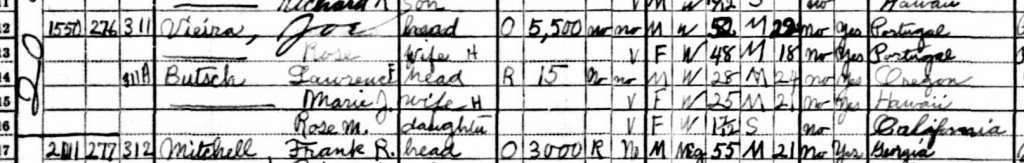 Richard R Son M W S no Hawaii
1550 276 311 Vieira, Joe head O 5,500 no no M W 52 M 29 no Yes Portugal
Rose Wife H V F W 48 M 18 no Yes Portugal
311A Butsch Lawrence F head R 15 No no M W 28 M 24 no Yes Oregon
Marie J. wife H V F W 25 M 21 no Yes Hawaii
Rose M. daughter V F W S no California
277 312 Mitchell, Frank R. head O 3000 R No M Neg 55 M 21 no Yes Georgia